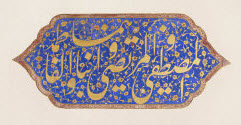 المصطفى و المرتضى و ابناهما و الفاطمة